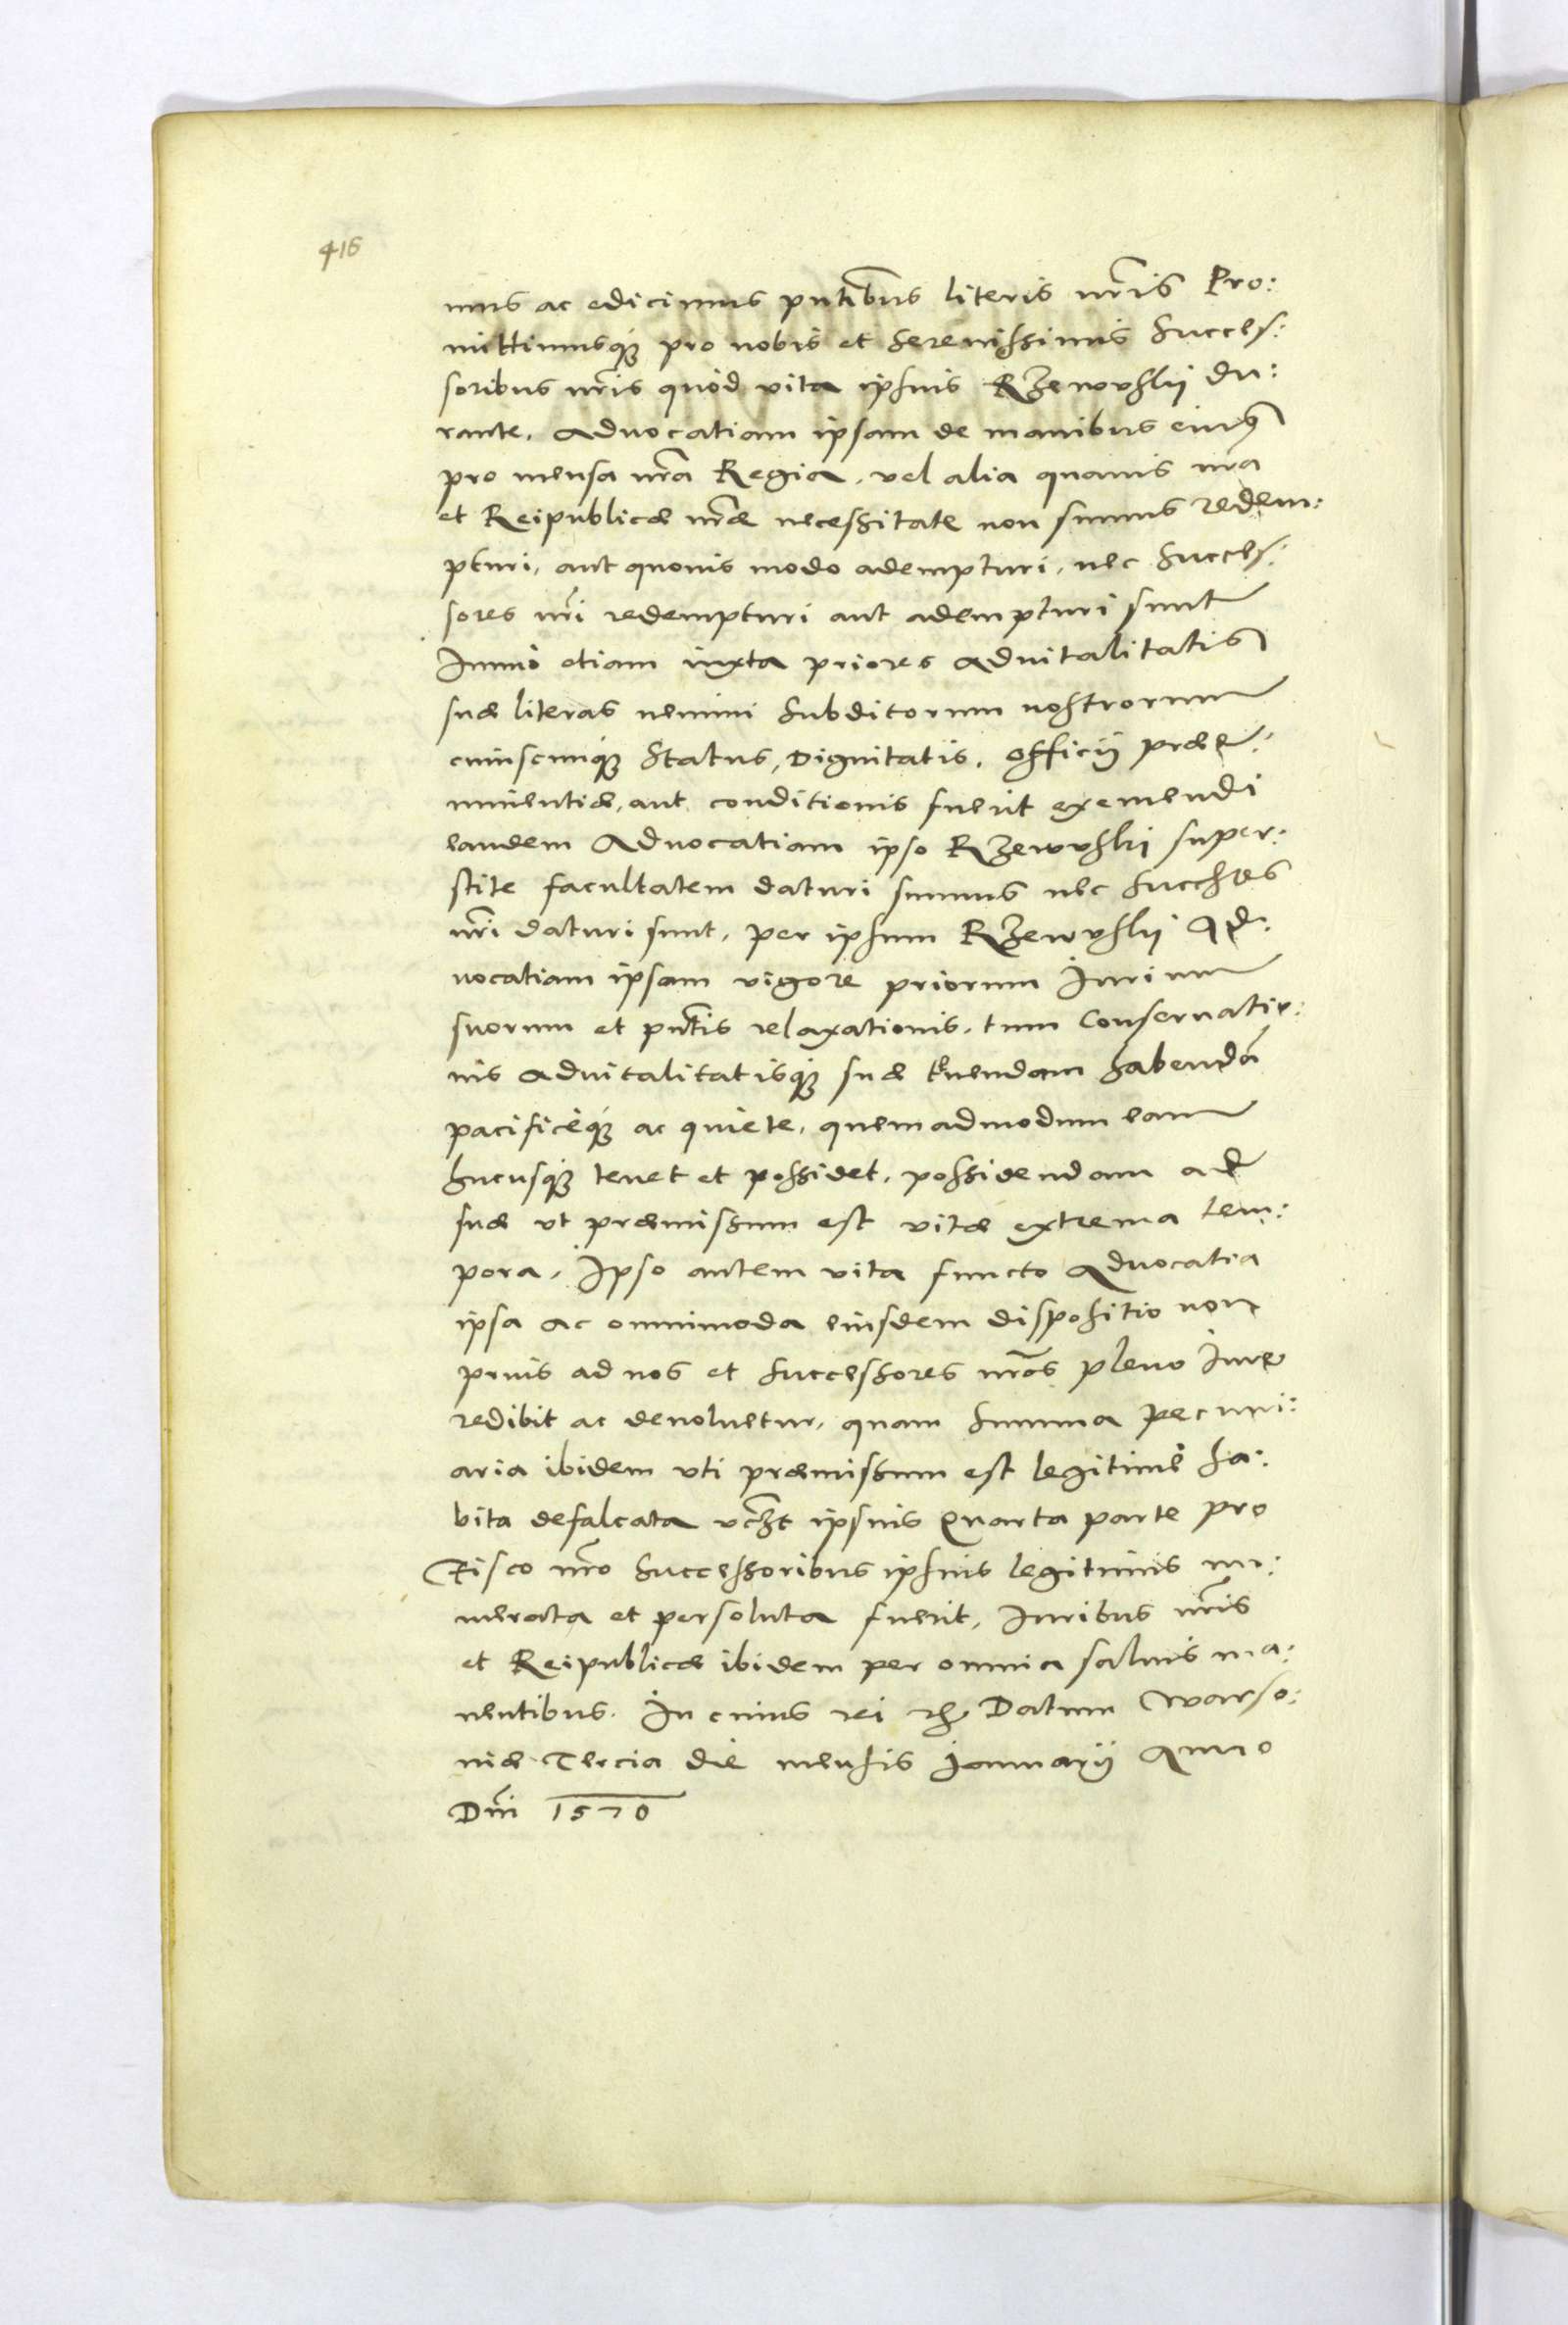 416
mus ac edicimus pntibus literis nris Pro:
mittimusq3 pro nobis et Serenissimis Succes:
soribus nris quòd vita ipsius Rzewvskij du:
rante, Aduocatiam ipsam de manibus eius
pro mensa nra Regia, vel alia quauis nra
et Reipublicæ nræ necessitate non sumus redem:
pturi, aut quouis modo adempturi, nec Succes:
sores nri redempturi aut adempturi sunt
Immò etiam iuxta priores aduitalitatis
suæ literas nemini Subditorum nostrorum
cuiuscunq3 Status, Dignitatis, Officij præe:
minentiæ, aut conditionis fuerit eximendi
eandem Aduocatiam ipso Rzewvskij super:
stite facultatem daturi sumus nec Succssres
nri daturi sunt, per ipsum Rzewvskij Ad:
uocatiam ipsam vigore priorum Iurium
suorum et pntis relaxationis, tum Conseruatio:
nis aduitalitatisq3 suæ tenendam habendã
pacificéq3 ac quiete, quemadmodum eam
hucusq3 tenet et possidet, possidendam ad
suæ vt præmissum est vitæ extrema tem:
pora, Ipso autem vita functo Aduocatia
ipsa ac omnimoda eiusdem dispositio non
prius ad nos et Successores nros pleno Iure
redibit ac deuoluetur, quam Summa pecuni:
aria ibidem vti præmissum est legitimè ha:
bita defalcata ipsius Quarta parte pro
Fisco nro Successoribus ipsius legitimis nu:
merata et persoluta fuerit, Iuribus nris
et Reipublicæ ibidem per omnia saluis ma:
nentibus. In cuius rei Datum Warso:
uiæ Tercia die mensis Ianuarij Anno
Dni 1570